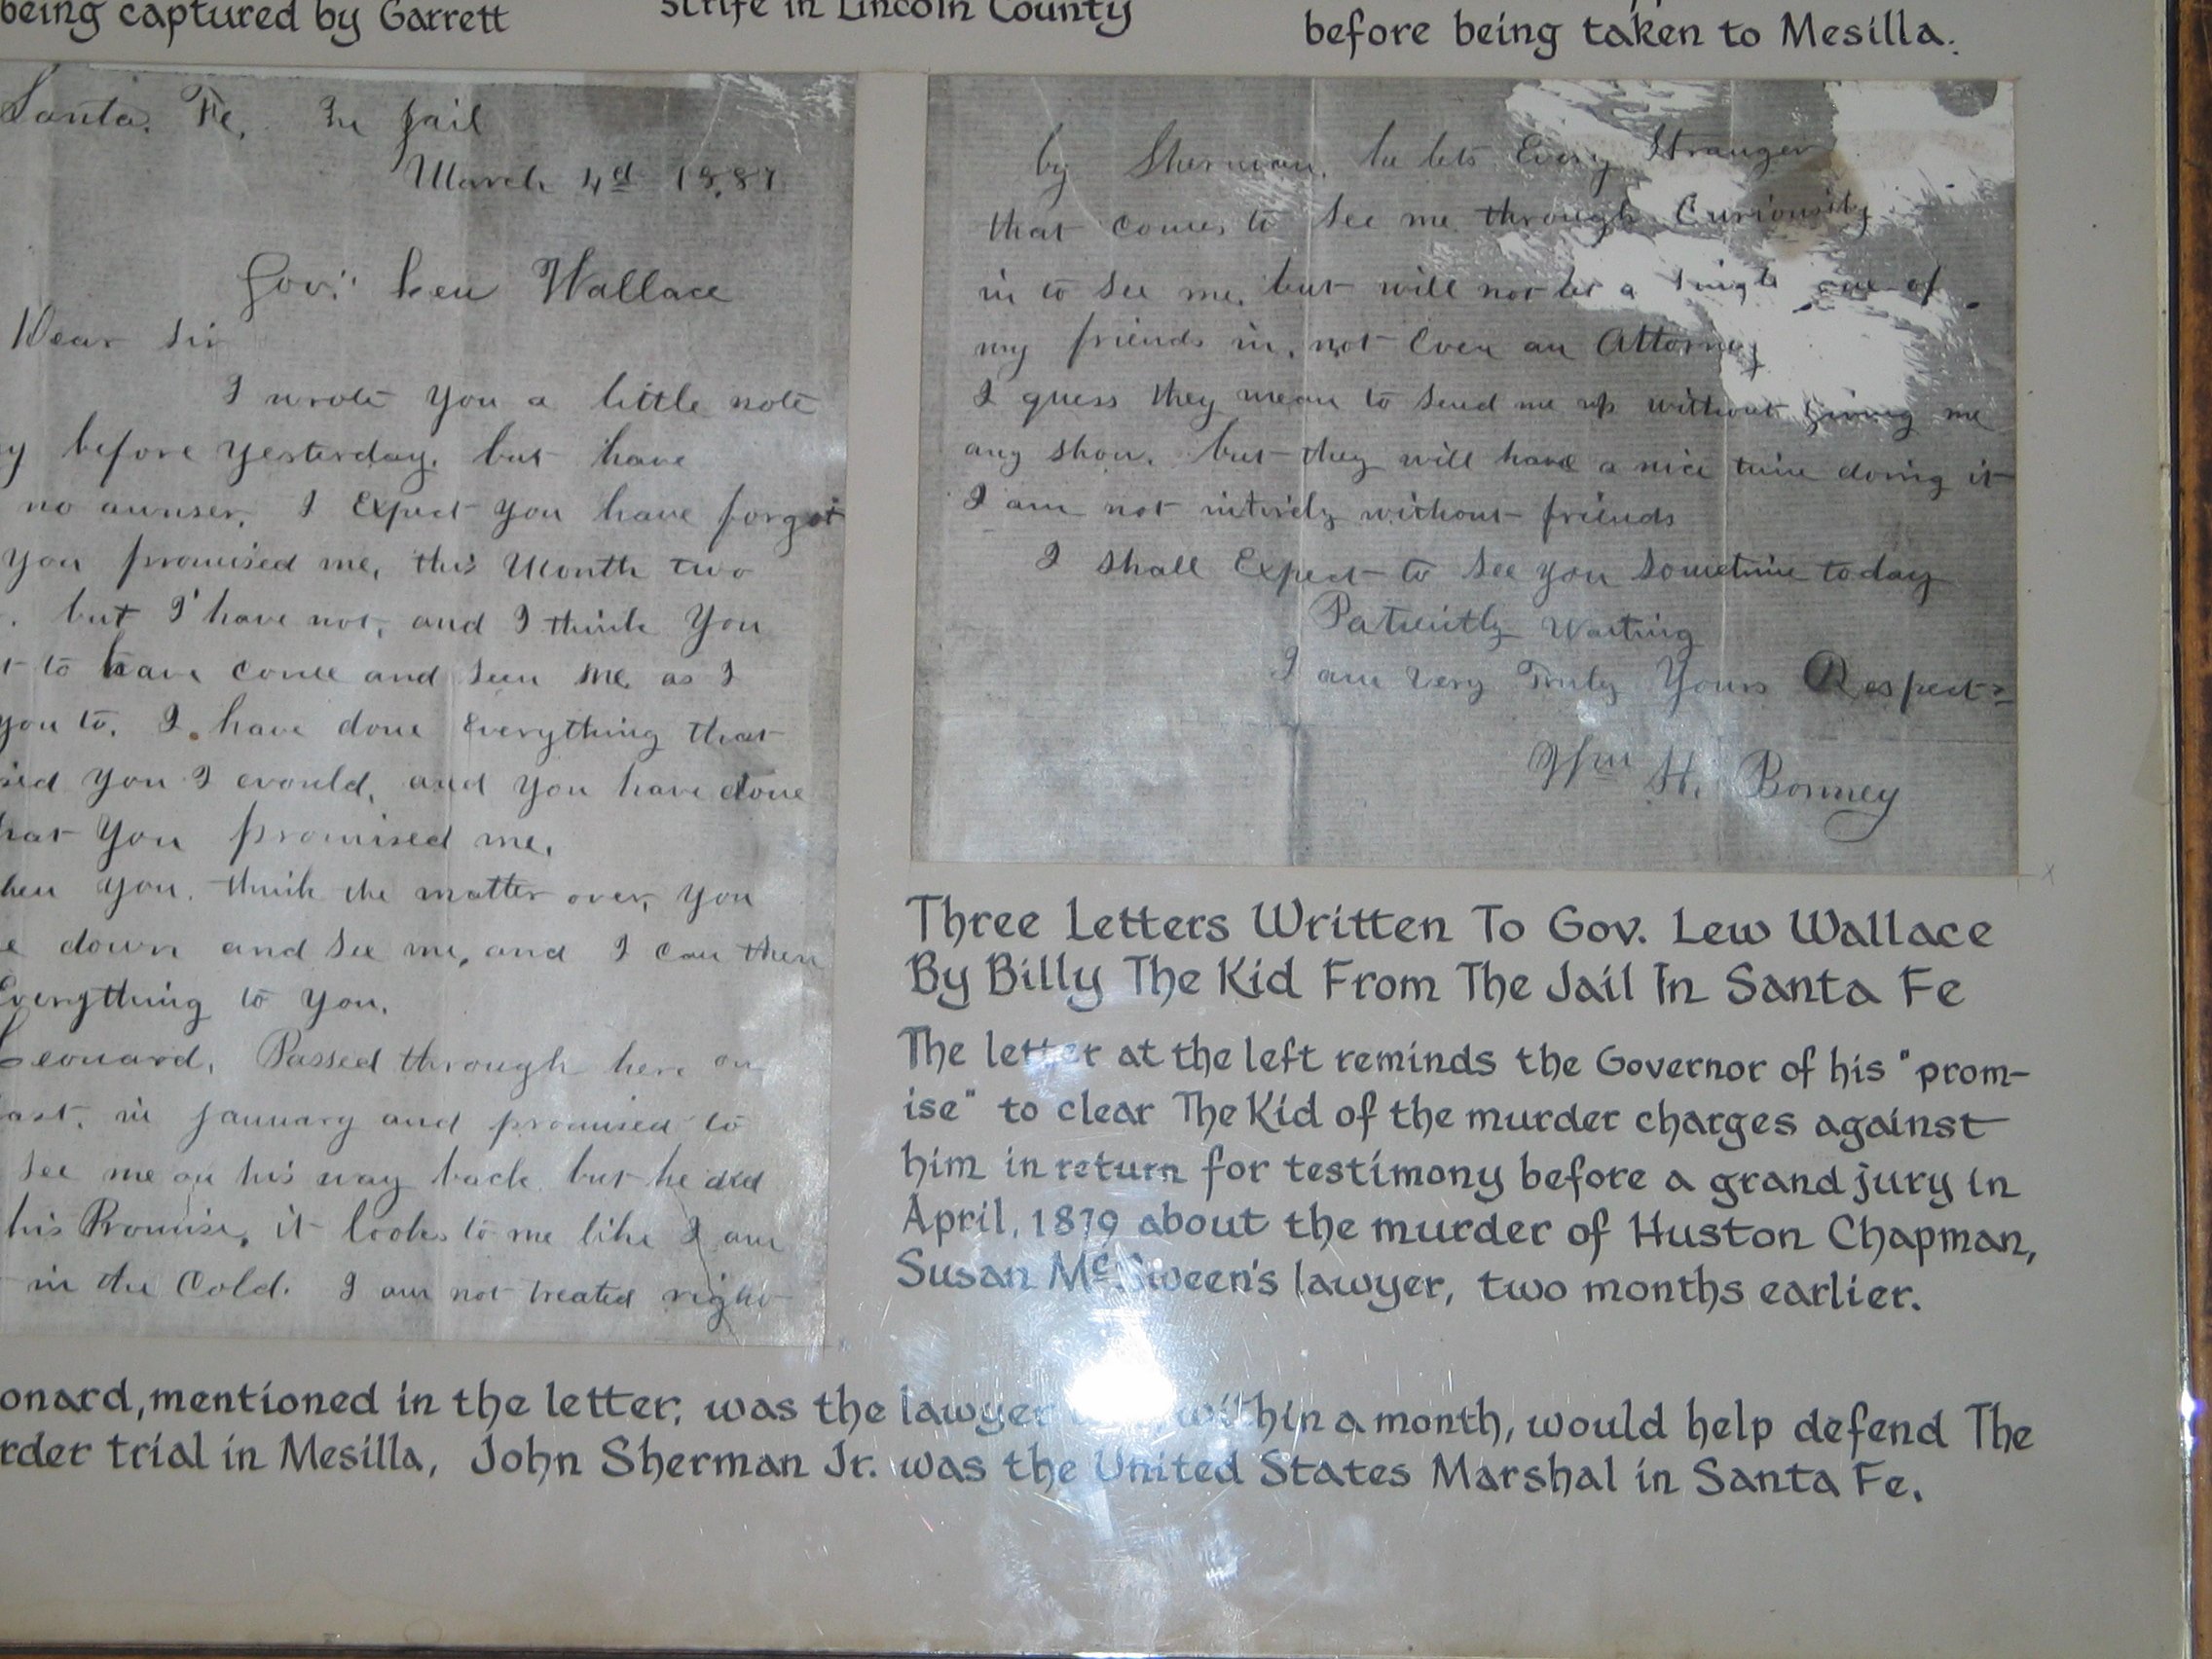 being captured by Garrett
strife in Lincoln County
before being taken to Mesilla.
Santa. Fe. In Jail
March 4d 1881
Gov: Lew Wallace
Dear Sir
I wrote You a little note
before yesterday. but have
no aunser. I Expect you have forgot
you promised me, this Month two
. but I have not, and I think You
to have come and seen me as I
you to. I have done Everything that
You I would, and You have done
You promised me.
You. think the matter over, You
down and See me, and I can then
Everything to You.
Leonard, Passed through here on
in January and promised to
See me on his way back but he did
his Promise, it looks to me like I am
in the Cold. I am not treated right
by Sherman. he lets Every Stranger
that comes to See me through Curiousity
in to See me, but will not let a Single one of
my friends in, not Even an Attorney
I guess they mean to Send me up without giving me
any show. but they will have a nice time doing it
I am not intirely without friends
I shall Expect to See you Sometime today
Patiently Waiting
I am Very Truly Yours Respect
Wm H. Bonney
Three Letters Written To Gov. Lew Wallace
By Billy The Kid From The Jail In Santa Fe
The letter at the left reminds the Governor of his "prom-
ise" to clear The Kid of the murder charges against
him in return for testimony before a grand jury in
April, 1879 about the murder of Huston Chapman,
Susan McSween's lawyer, two months earlier.
onard, mentioned in the letter, was the lawyer within a month, would help defend The
rder trial in Mesilla, John Sherman Jr. was the United States Marshal in Santa Fe.